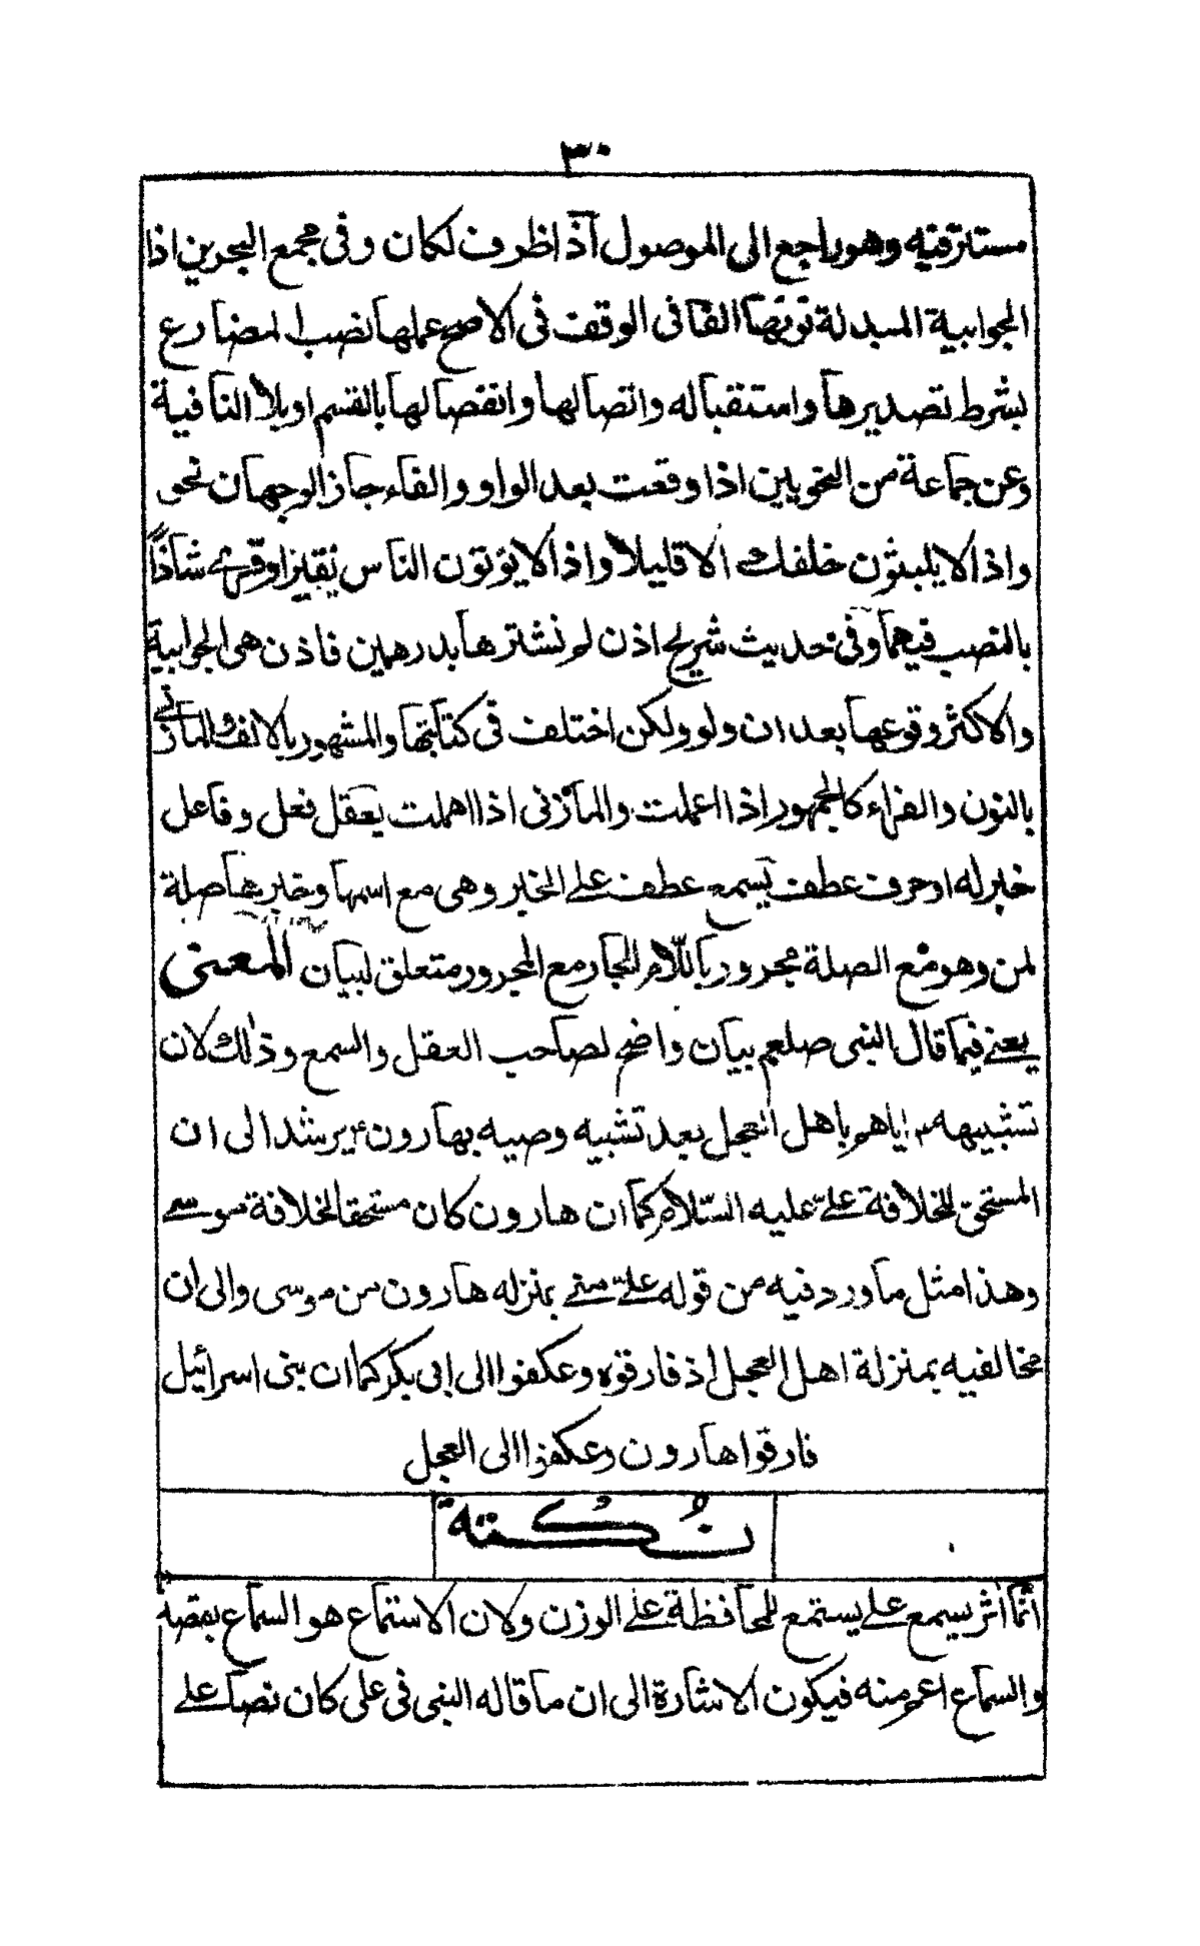 ٣٠
مستتر فيه وهو راجع الى الموصول آذ اظرف لكان وفى مجمع البحرين اذا
الجوابية المبدلة نونها الفا فى الوقف فى الاصح عملها نصب المضارع
بشرط تصديرها واستقباله واتصالها وانفصالها بالقسم او بلا النافية
وعن جماعة من النحويين اذا وقعت بعد الواو والفاء جاز الوجهان نحو
واذا لا يلبثون خلفك الا قليلا واذا لا يؤتون الناس نقيرا وقرئ شاذا
بالنصب فيهما وفى حديث شريح اذن لو نشترها بدرهمين فاذن هى الجوابية
والاكثر وقوعها بعد ان ولو ولكن اختلف فى كتابتها والمشهور بالالف والمازنى
بالنون والفراء كالجمهور اذا اعملت والمازنى اذا اهملت يعقل فعل وفاعل
خبر له او حرف عطف يسمع عطف على الخبر وهى مع اسمها وخبرها صلة
لمن وهو مع الصلة مجرور باللام الجار مع المجرور متعلق لبيان المعنى
يعنى فيما قال النبى صلعم بيان واضح لصاحب العقل والسمع وذلك لان
تشبيهه اياهم باهل العجل بعد تشبيه وصيه بهارون يرشد الى ان
المستحق للخلافة على عليه السلام كما ان هارون كان مستحقا لخلافة موسى
وهذا مثل ما ورد فيه من قوله على منى بمنزله هارون من موسى والى ان
مخالفيه بمنزلة اهل العجل اذ فارقوه وعكفوا الى ابى بكر كما ان بنى اسرائيل
فارقوا هارون وعكفوا الى العجل
نُكْتة
انما اثر يسمع على يستمع للمحافظة على الوزن ولان الاستماع هو السماع بقصد
والسماع اعم منه فيكون الاشارة الى ان ما قاله النبى فى على كان نصا على